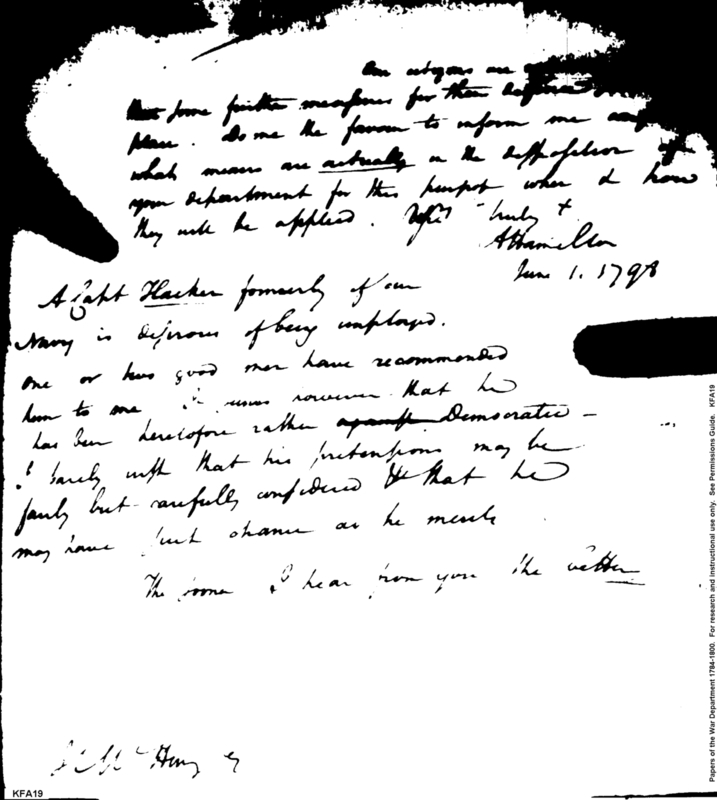 Our citizens are
that some further measures for their defence
place. Do me the favour to inform me
what means are actually in the disposition of
your department for this purpose when & how
they will be applied. truly
AHamilton
June 1. 1798
A Capt Hacker formerly of our
Navy is desirous of being employed.
One or two good men have recommended
him to me. It seems however that he
has been heretofore rather against Democratic –
I barely wish that his pretensions may be
fairly but carefully considered & that he
may have such chance as he merits
The sooner I hear from you the better
J McHenry
KFA19
Papers of the War Department 1784-1800. For research and instructional use only. See Permissions Guide. KFA19